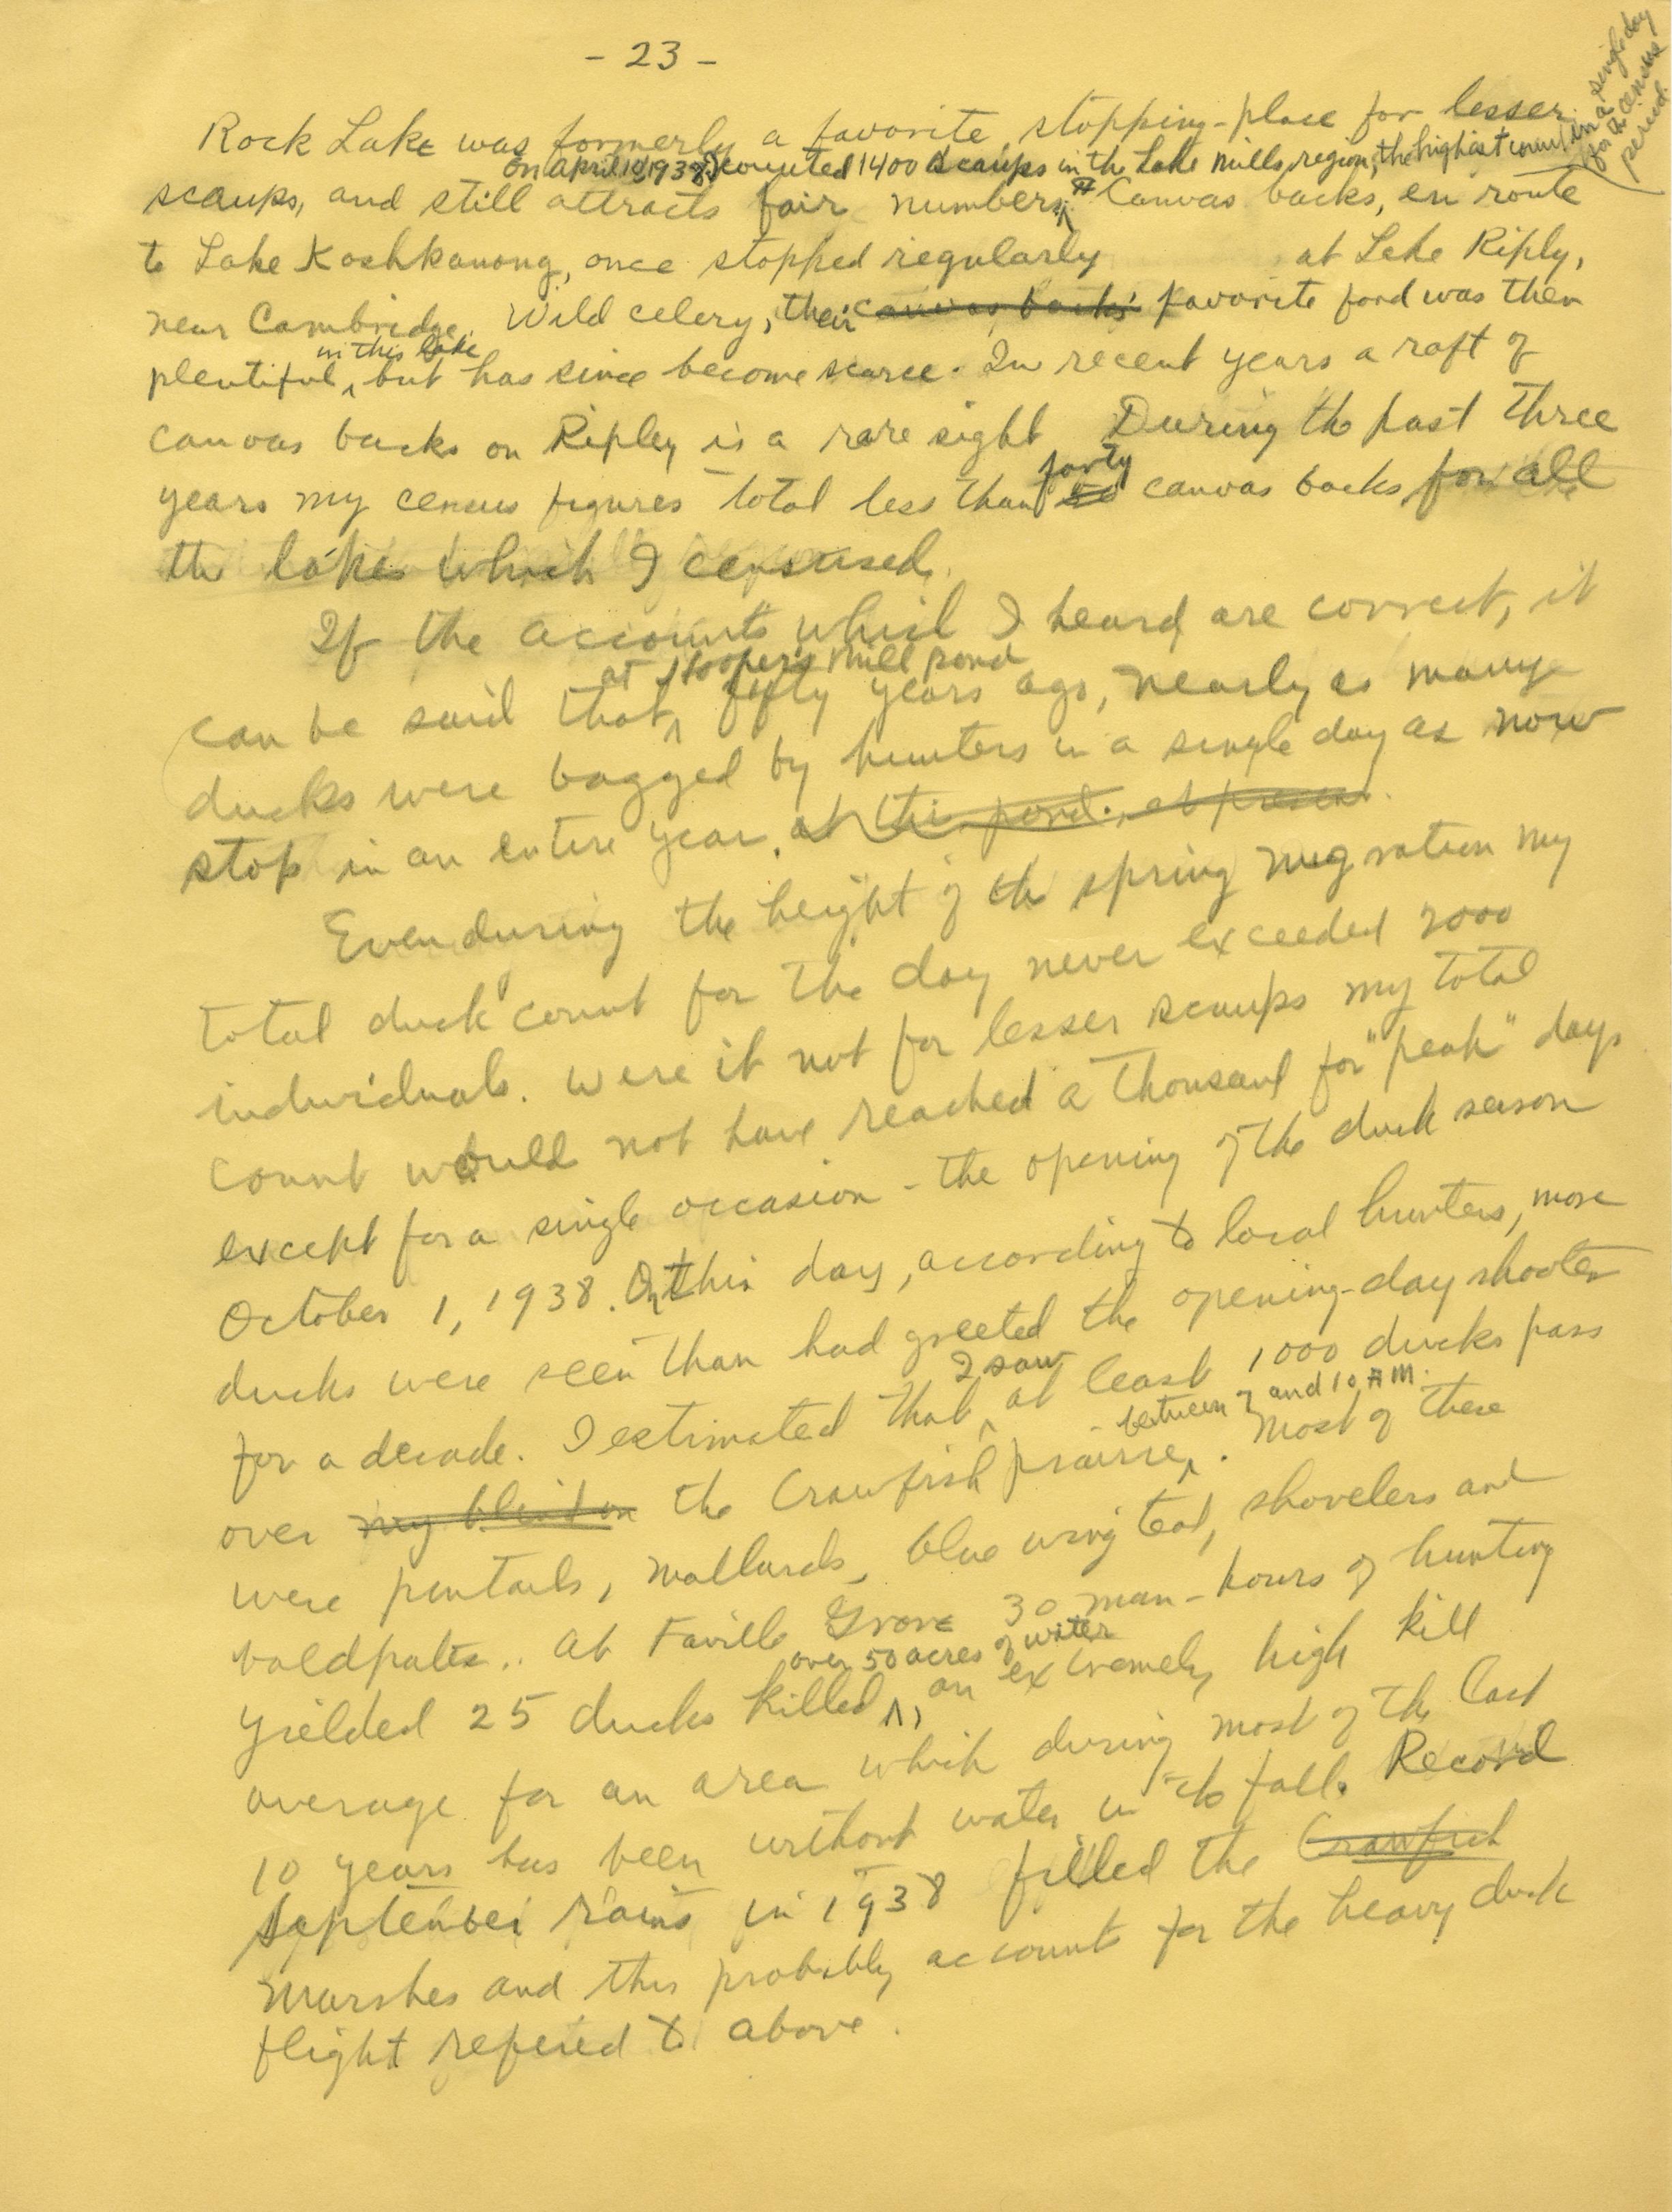 - 23 -
in a single day
for a census
period.
Rock Lake was formerly a favorite stopping-place for lesser
on April 10, 1938 I counted 1400 scaups in the Lake Mills region, the highest count
scaups, and still attracts fair numbers. Canvas backs, en route
to Lake Koshkanong, once stopped regularly at Lake Riply,
near Cambridge. Wild celery, their canvas backs' favorite food was then
in this lake
plentiful, but has since become scarce. In recent years a raft of
canvas backs on Ripley is a rare sight During the past three
forty
years my census figures total less than canvas backs for all
the lakes which I censused.
If the accounts which I heard are correct, it
at Hooper's Mill pond
can be said that fifty years ago, nearly as many
ducks were bagged by hunters in a single day as now
stop in an entire year. at this pond, at present.
Even during the height of the spring migration my
total duck count for the day never exceeded 2000
individuals. Were it not for lesser scaups my total
count would not have reached a thousand for "peak" days
except for a single occasion - the opening of the duck season
October 1, 1938. On this day, according to local hunters, more
ducks were seen than had greeted the opening-day shooter
I saw
for a decade. I estimated that at least 1000 ducks pass
between 7 and 10 A M.
over my blind on the Crawfish prairie. Most of these
were pintails, mallards, blue wing teal, shovelers and
baldpates.. At Faville Grove 30 man-hours of hunting
over 50 acres of water
yielded 25 ducks killed, an extremely high kill
average for an area which during most of the last
10 years has been without water in the fall. Record
September rains in 1938 filled the Crawfish
marshes and this probably accounts for the heavy duck
flight refered to above.